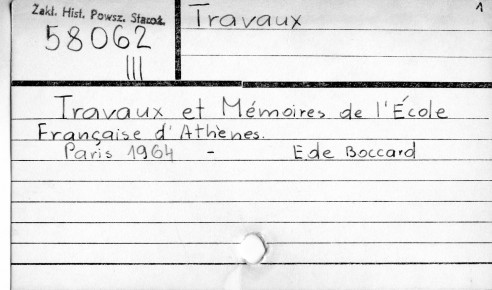 Zakł. Hist. Powsz. Staroż.
58062
III
Travaux
1
Travaux et Mémoires de l'École
Française d'Athènes.
Paris 1964 - E. de Boccard